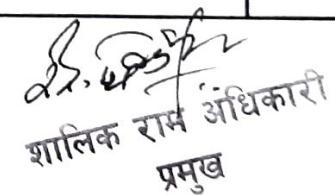 शालिक राम अधिकारी
प्रमुख